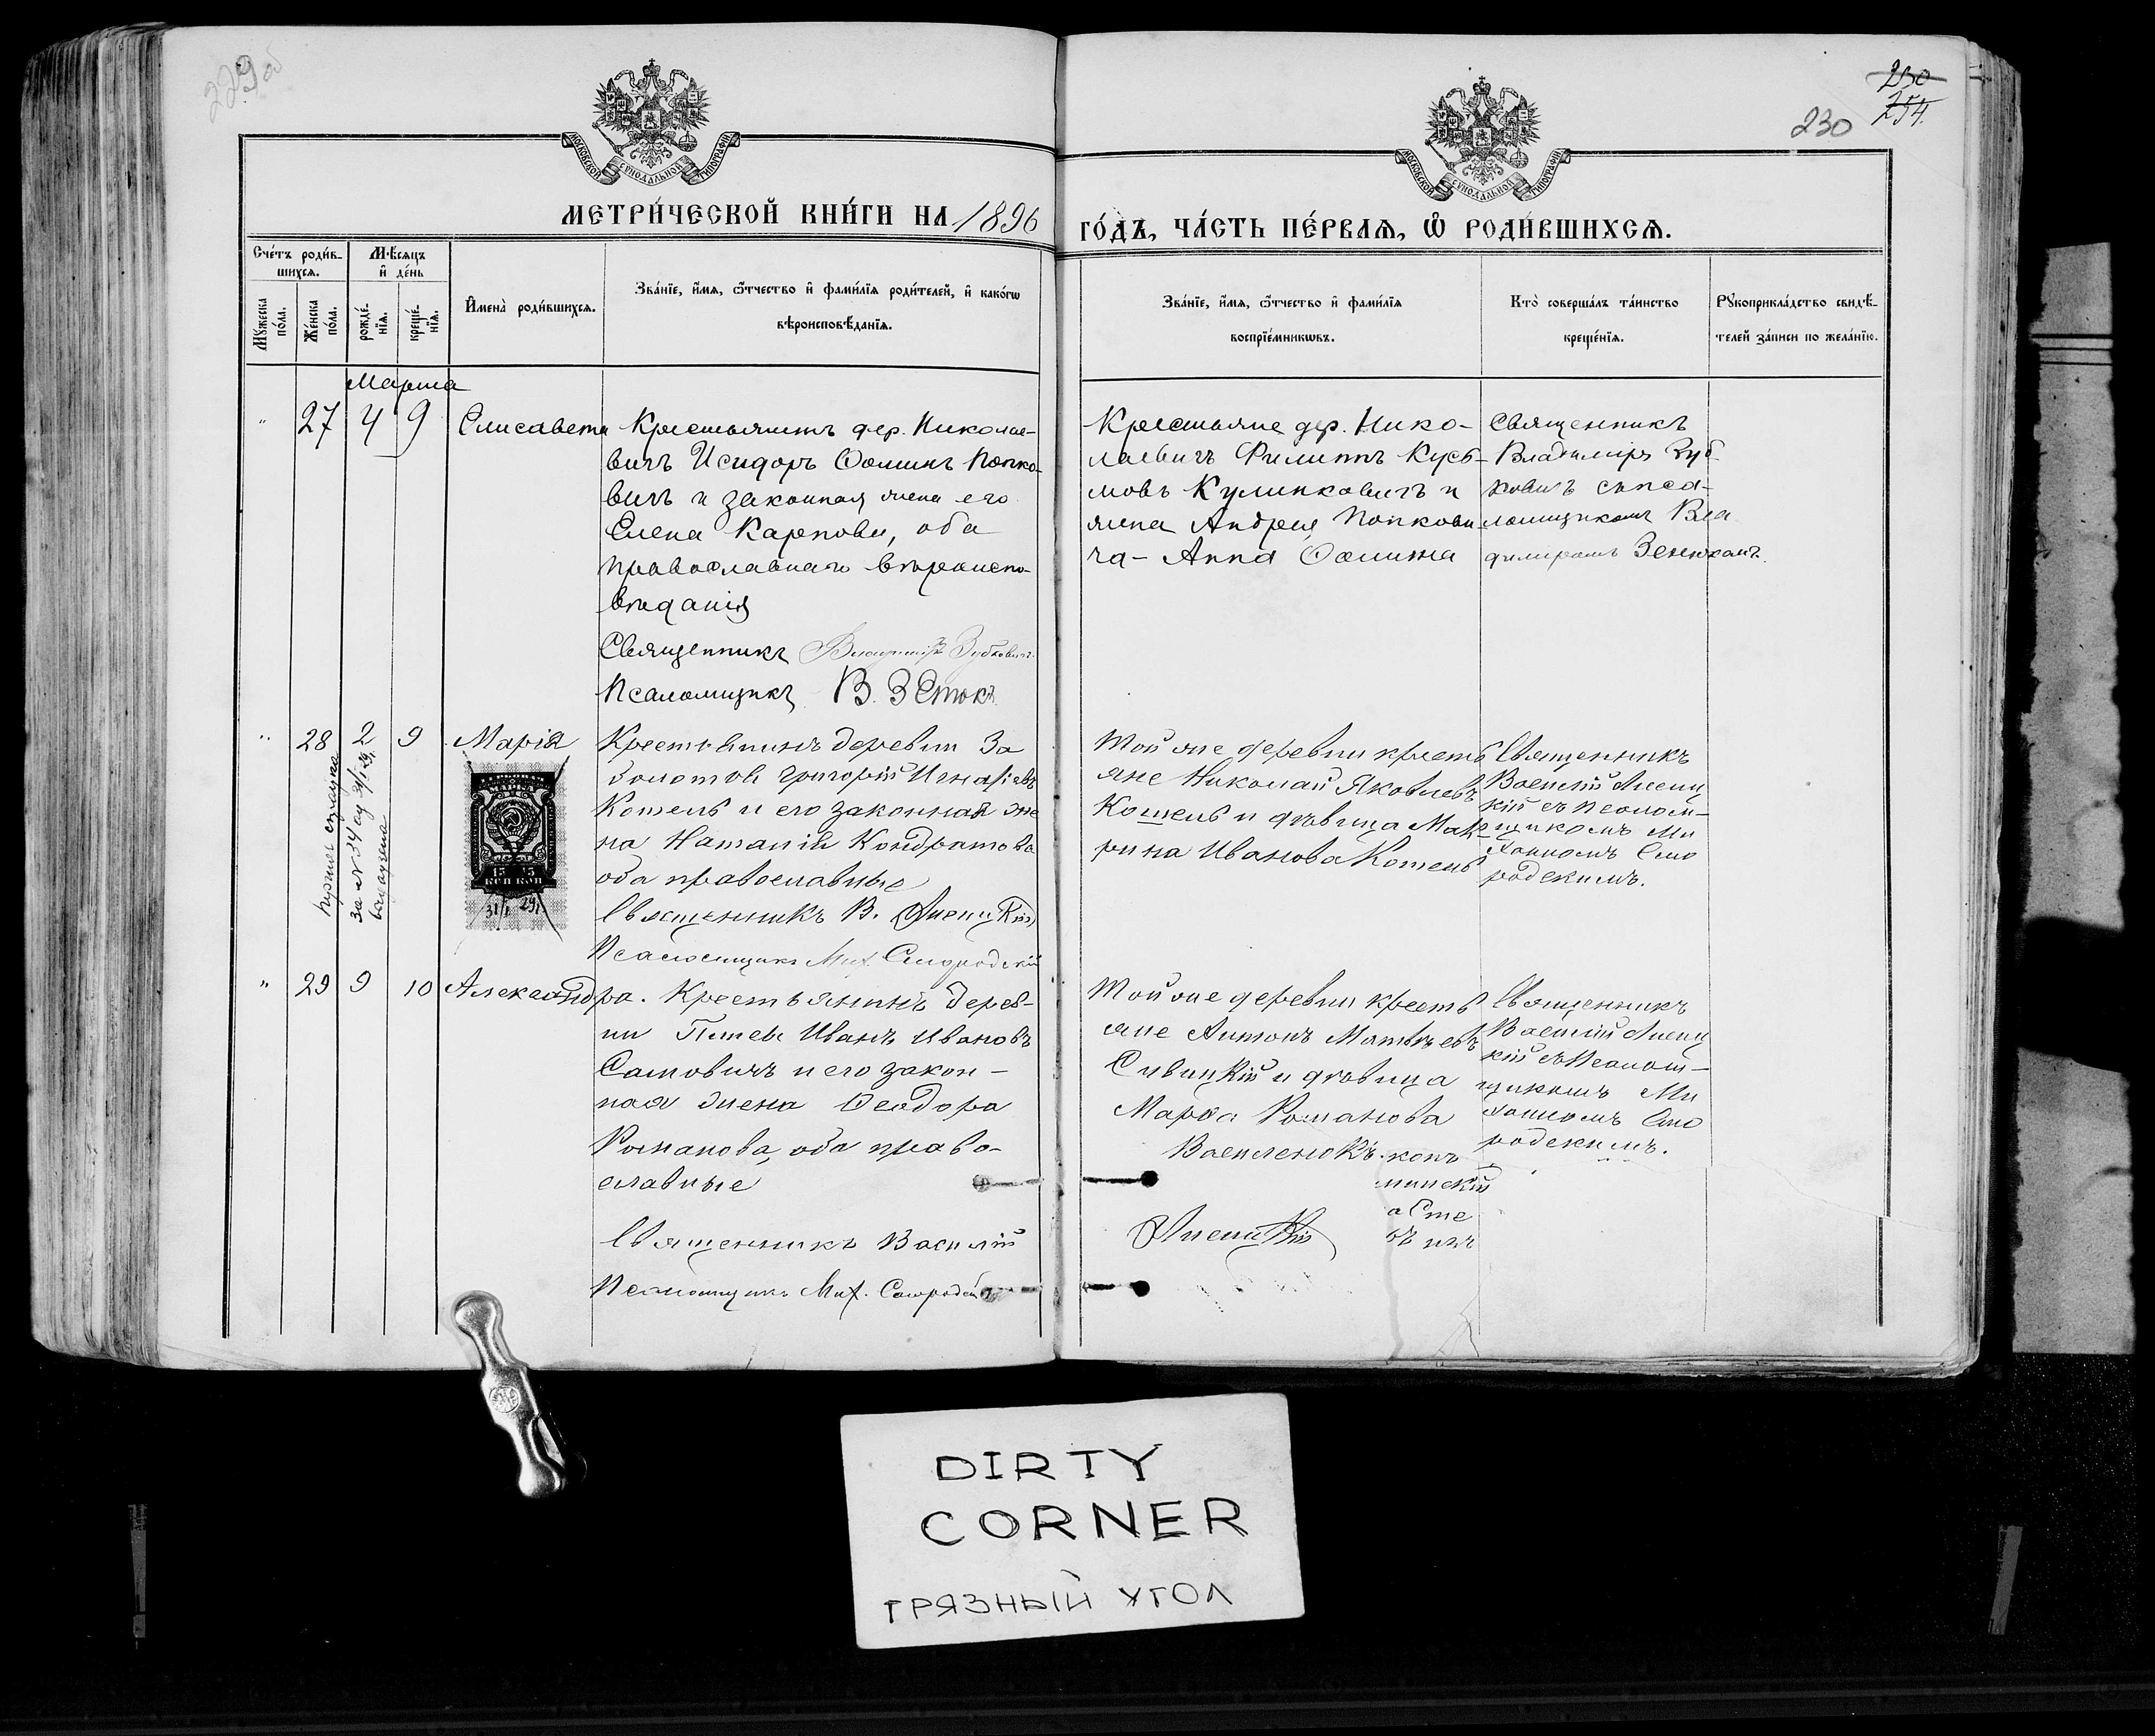 229об
230
254.
230
МОСКОВСКОЙ СУНОДАЛЬНОЙ ТИПОГРАФІИ
МОСКОВСКОЙ СУНОДАЛЬНОЙ ТИПОГРАФІИ
МЕТРИ́ЧЕСКОЙ КНИ́ГИ НА 1896
ГО́ДЪ, ЧА́СТЬ ПЕ́РВАѦ, Ѡ҆ РОДИ́ВШИХСѦ.
Сче́тъ роди́в-
шихсѧ.
Мѣ́сѧцъ
и҆ де́нь
Мꙋ́жеска
по́ла.
Же́нска
по́ла.
рожде́-
нїѧ.
креще́-
нїѧ.
И҆мена̀ роди́вшихсѧ.
Зва́нїе, и҆́мѧ, ѻ҆́тчество и҆ фами́лїѧ роди́телей, и҆ како́гѡ
вѣроисповѣ́данїѧ.
Зва́нїе, и҆́мѧ, ѻ҆́тчество и҆ фами́лїѧ
воспрїе́мникѡвъ.
Кто̀ соверша́лъ та́инство
креще́нїѧ.
Рꙋкоприкла́дство свидѣ́-
телей за́писи по жела́нїю.
Марта
27 4 9 Елисавета
Крестьянинъ дер. Николае-
вичъ Исидоръ Ѳоминъ Попко-
вичъ и законная жена его
Елена Карпова, оба
православнаго вѣроиспо-
вѣданія
Священникъ Владиміръ Зубковичъ
Псаломщикъ В. Зенюкъ
Крестьяне дер. Нико-
лаевичъ Филиппъ Кузь-
мовъ Кулинковичъ и
жена Андрея Попкови
ча - Анна Ѳомина
Священникъ
Владиміръ Зуб-
ковичъ съ пса-
ломщикомъ Вла
димиромъ Зенюкомъ.
28 2 9 Марія
за № 34
МАРКА
15 15
КОП КОП
31/I 29г.
Крестьянинъ деревни За
болотья Григорій Игнатіевъ
Котель и его законная же
на Наталія Кондратова
оба православные
Священникъ В. Лисицкій
Псаломщикъ Мих. Смородскій
Той же деревни кресть
яне Николай Яковлевъ
Котель и дѣвица Мак-
рина Иванова Котель
Священникъ
Василій Лисиц
кій съ псалом-
щикомъ Ми
хаиломъ Смо
родскимъ.
29 9 10 Александра.
Крестьянинъ дерев-
ни Ивановъ
Самовичъ и его закон-
ная жена Ѳеодора
Романова, оба право-
славные
Священникъ Василій
Псаломщикъ Мих. Смородскій
Той же деревни кресть
яне Антонъ Матвѣевъ
Сивицкій и дѣвица
Марѳа Романова
Василенокъ.
Лисицкій
Священникъ
Василій Лисиц
кій съ Псалом-
щикомъ Ми
хаиломъ Смо
родскимъ.
DIRTY
CORNER
ГРЯЗНЫЙ УГОЛ